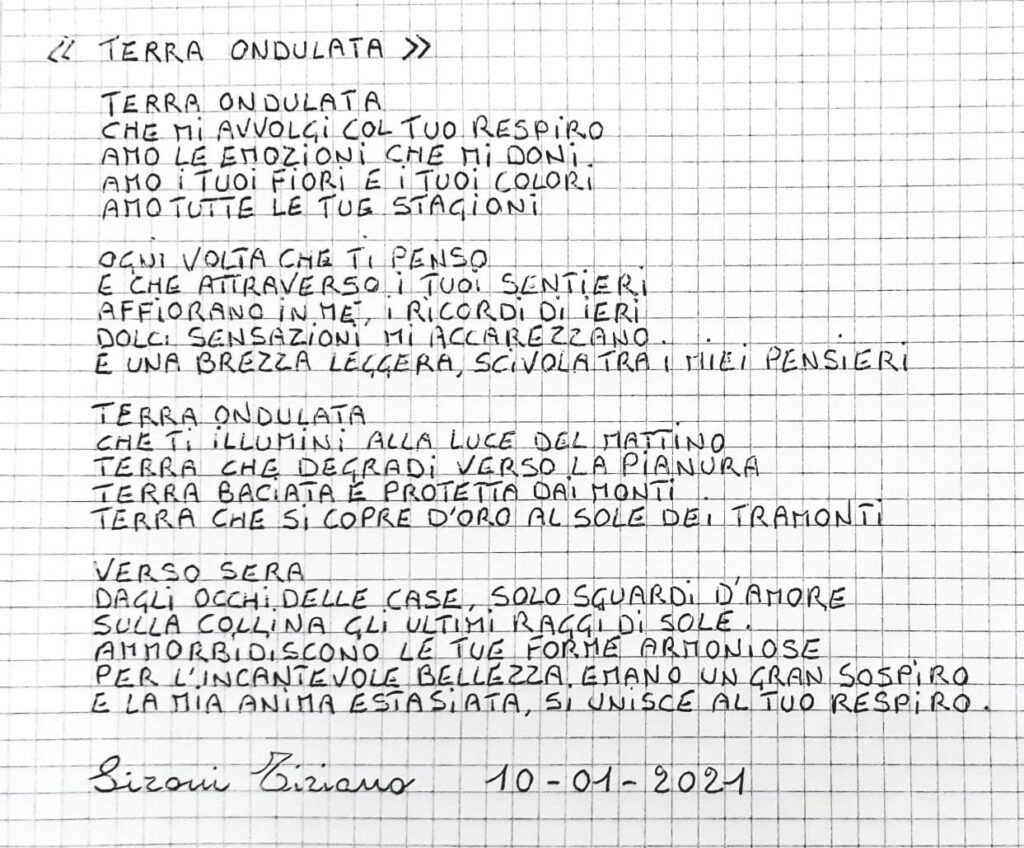 « TERRA ONDULATA »
TERRA ONDULATA
CHE MI AVVOLGI COL TUO RESPIRO
AMO LE EMOZIONI CHE MI DONI.
AMO I TUOI FIORI E I TUOI COLORI
AMO TUTTE LE TUE STAGIONI
OGNI VOLTA CHE TI PENSO
E CHE ATTRAVERSO I TUOI SENTIERI
AFFIORANO IN ME, I RICORDI DI IERI
DOLCI SENSAZIONI MI ACCAREZZANO.
E UNA BREZZA LEGGERA, SCIVOLA TRA I MIEI PENSIERI
TERRA ONDULATA
CHE TI ILLUMINI ALLA LUCE DEL MATTINO
TERRA CHE DEGRADI VERSO LA PIANURA
TERRA BACIATA E PROTETTA DAI MONTI.
TERRA CHE SI COPRE D'ORO AL SOLE DEI TRAMONTI
VERSO SERA
DAGLI OCCHI DELLE CASE, SOLO SGUARDI D'AMORE
SULLA COLLINA GLI ULTIMI RAGGI DI SOLE.
AMMORBIDISCONO LE TUE FORME ARMONIOSE
PER L'INCANTEVOLE BELLEZZA, EMANO UN GRAN SOSPIRO
E LA MIA ANIMA ESTASIATA, SI UNISCE AL TUO RESPIRO.
Sironi Tiziano 10-01-2021